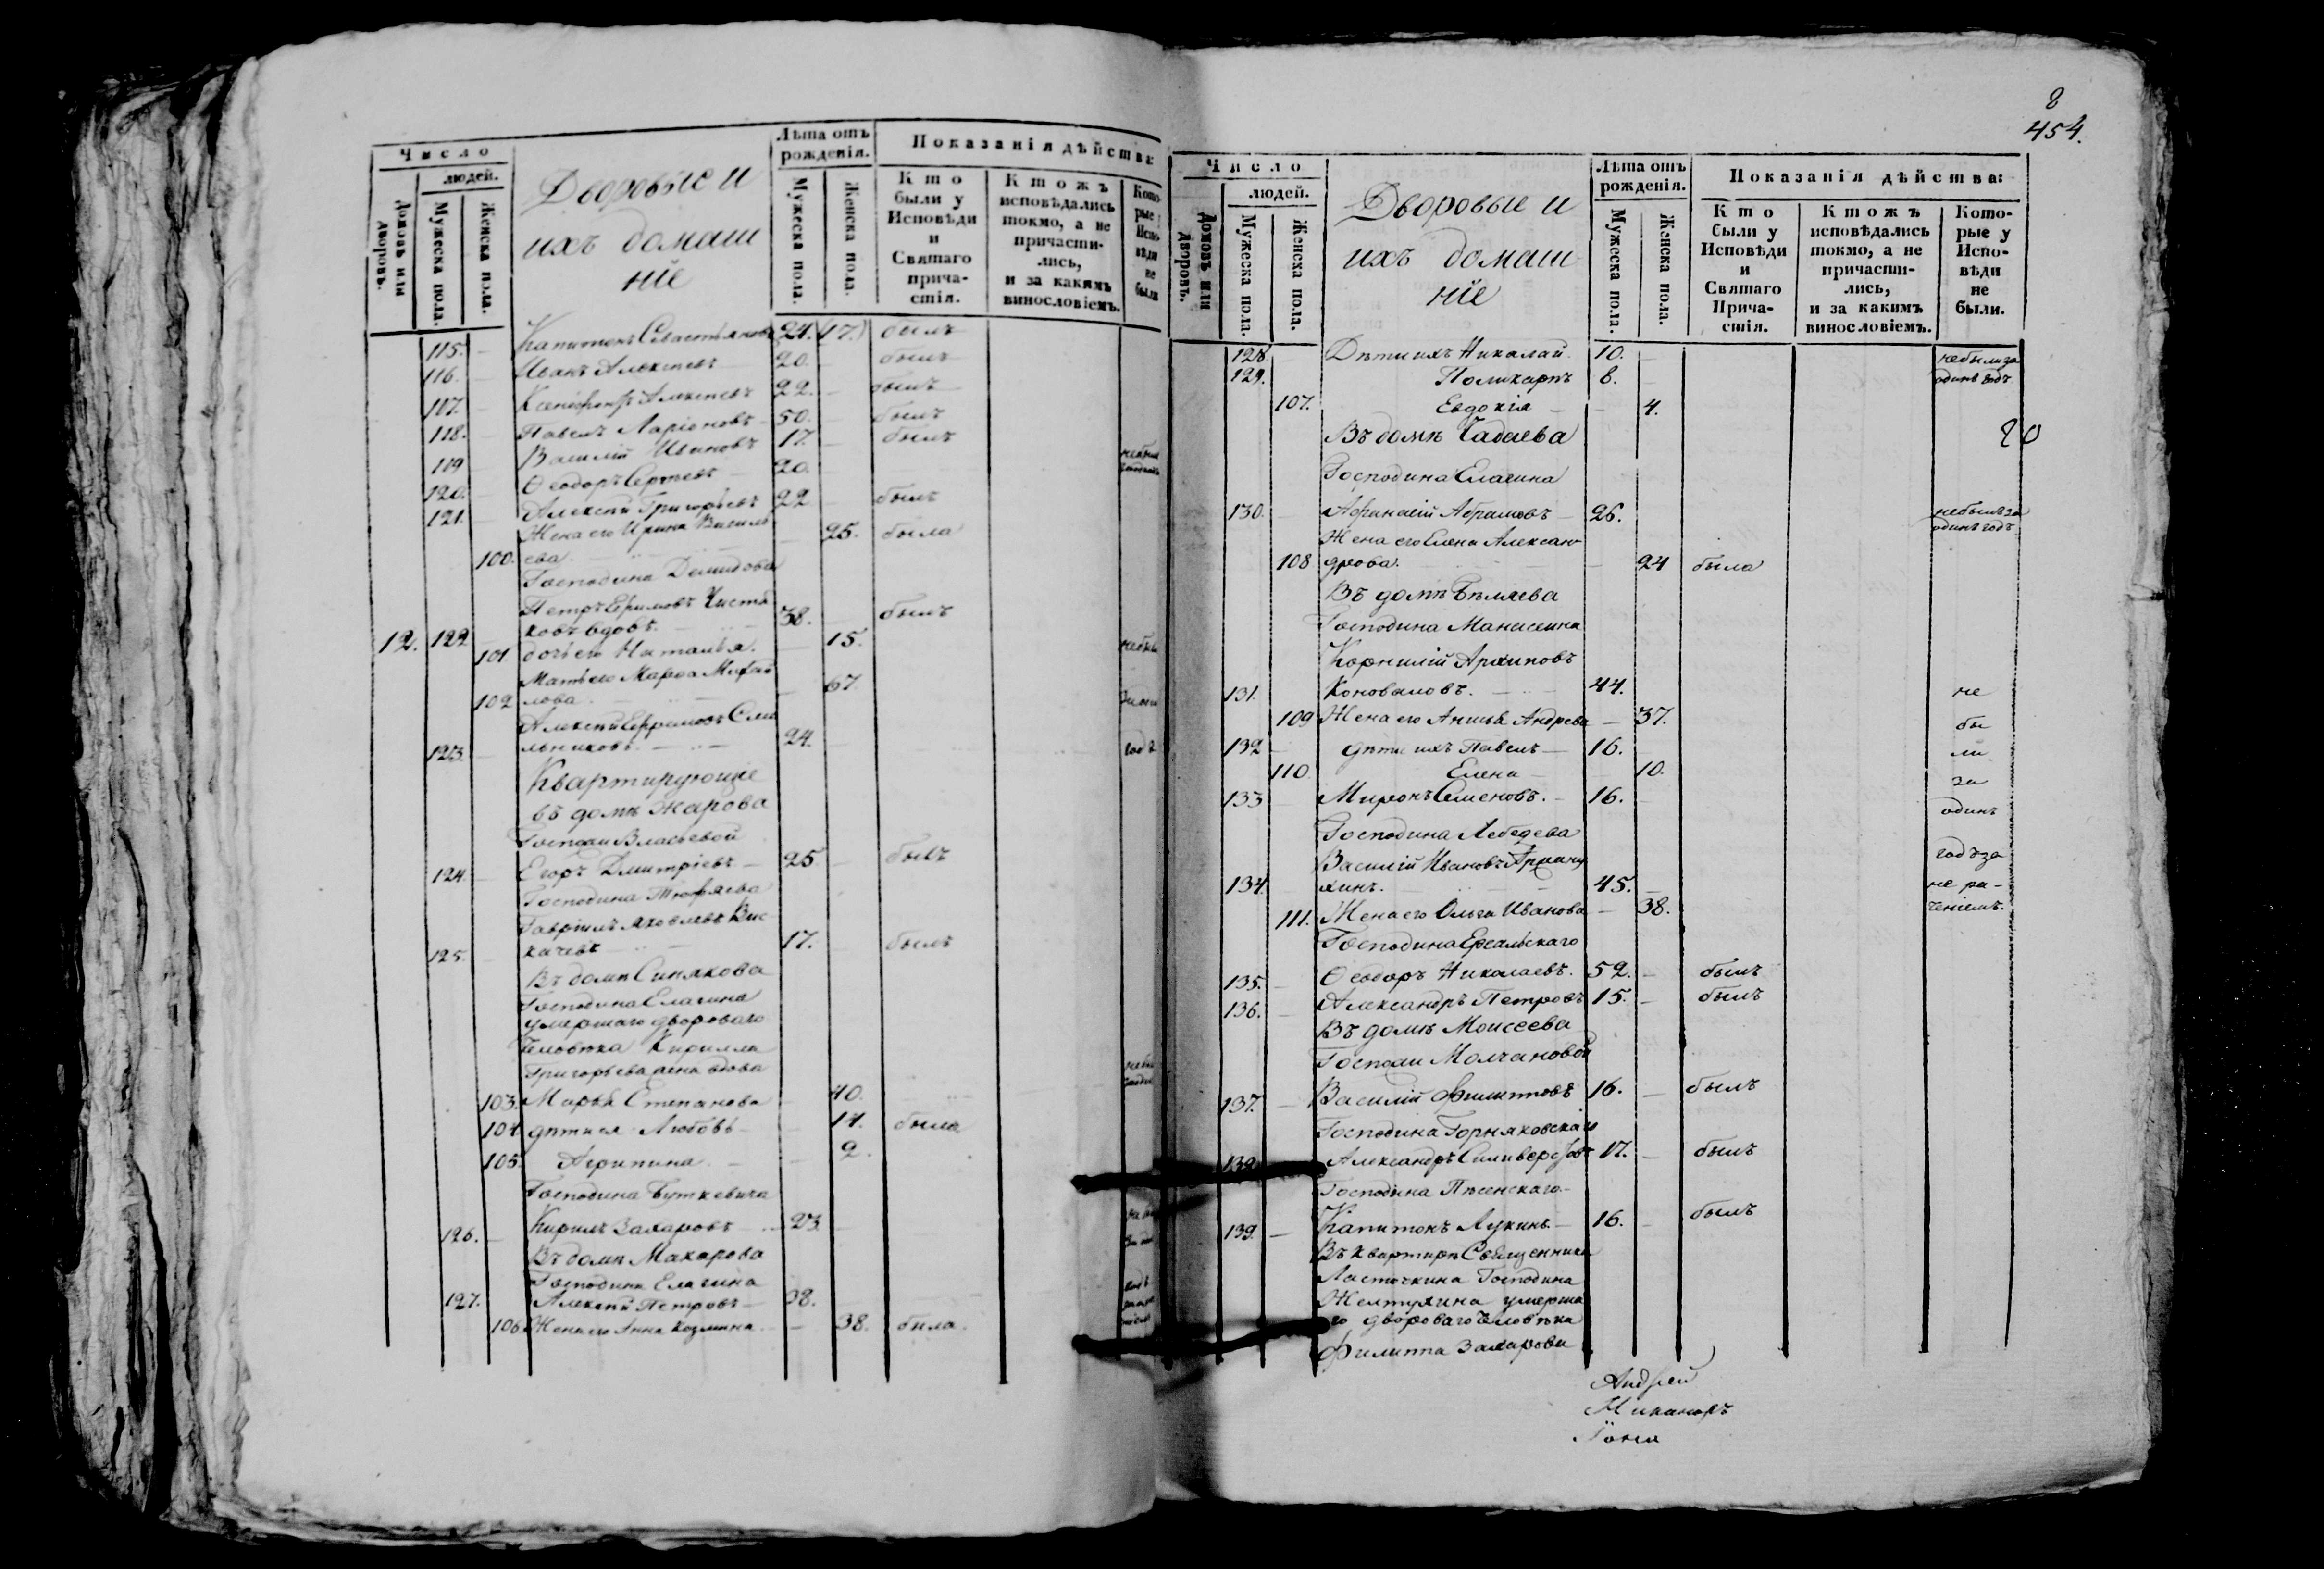 Число
людей.
Домовъ или дворовъ.
Мужеска пола.
Женска пола.
Дворовые и
ихъ домаш
нiе
Лѣта отъ
рожденiя.
Мужеска пола.
Женска пола.
Показанiя дѣйства:
Кто
были у
Исповѣди
и
Святаго
прича-
стiя.
Ктожъ
исповѣдались
токмо, а не
причасти-
лись,
и за какимъ
винословiемъ.
Кото-
рые у
Испо-
вѣди
не
были
115. Капитонъ Савастьяновъ 24. (17.) былъ
116. Иванъ Алексѣевъ 20. былъ
107. Ксенофонтъ Алексѣевъ 22. былъ
118. Павелъ Ларiоновъ 50. былъ
119 Василiй Ивановъ 17. былъ
120. Ѳеодоръ Сергѣевъ 20.
121. Алексѣй Григорьевъ 22 былъ
Жена его Ирина Василь
100. ева 25. была
Господина Демидова
Петръ Ефимовъ Чистя
12. 122 ковъ вдовъ. 38. былъ
101. дочь его Наталья. 15.
Мать его Марѳа Михай
102 лова 67.
Алексѣй Ефремовъ Сли
123. льниковъ. 24.
Квартирующiе
въ домѣ Жарова
Госпожи Власьевой
124. Егоръ Дмитрiевъ 25. былъ
Господина Тюфяева
Гаврiилъ Яковлевъ Кис
125. качевъ 17. былъ
Въ домѣ Синякова
Господина Елагина
умершаго двороваго
человѣка Кирилла
Григорьева жена вдова
103. Марья Степанова 40.
104 дѣти ея Любовь 14. была
105. Агрипина 9.
Господина Буткевича
126. Кирилъ Захаровъ 23.
Въ домѣ Макарова
Господина Елагина
127. Алексѣй Петровъ 38.
106. Жена его Анна Козмина 38. была.
8
454.
Число
людей.
Домовъ или дворовъ.
Мужеска пола.
Женска пола.
Дворовые и
ихъ домаш
нiе
Лѣта отъ
рожденiя.
Мужеска пола.
Женска пола.
Показанiя дѣйства:
Кто
были у
Исповѣди
и
Святаго
Прича-
стiя.
Ктожъ
исповѣдались
токмо, а не
причасти-
лись,
и за какимъ
винословiемъ.
Кото-
рые у
Испо-
вѣди
не
были.
128 Дѣти ихъ Николай 10. небыли за
129. Поликарпъ 8. одинъ годъ
107. Евдокiя 4.
Въ домѣ Чадаева
20
Господина Елагина
130. Афанасiй Абрамовъ 26. небылъ за
одинъ годъ
Жена его Елена Алексан
108 дрова. 24 была
Въ домѣ Бѣляева
Господина
Корнилiй Архиповъ
131. Коноваловъ. 44. не
109 Жена его Анисья Андреева 37. бы
132 дѣти ихъ Павелъ 16. ли
110 Елена 10. за
133 Миронъ Семеновъ. 16. одинъ
Господина Лебедева
Василiй Ивановъ годъ за
134. хинъ. 45. не ра-
111. Жена его Ольга Иванова 38. ченiемъ.
Господина
135. Ѳеодоръ Николаевъ. 52. былъ
136. Александръ Петровъ 15. былъ
Въ домѣ Моисеева
Госпожи Молчановой
137. Василiй Филипповъ 16. былъ
Господина Горняковскаго
138 Александръ Силиверстовъ 17. былъ
Господина Пѣсенскаго
139. Капитонъ Лукинъ 16. былъ
Въ квартирѣ Священника
Ласточкина Господина
Желтухина умерша
го двороваго человѣка
Филиппа Захарова
Андрей
Никаноръ